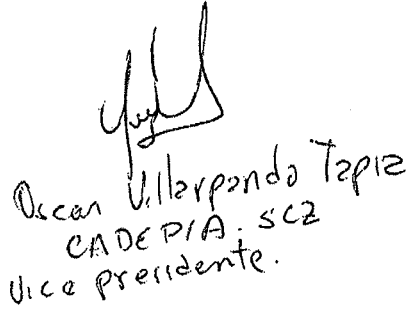 Oscar Villarpando Tapia
CADEPIA. SCZ
Vice presidente.